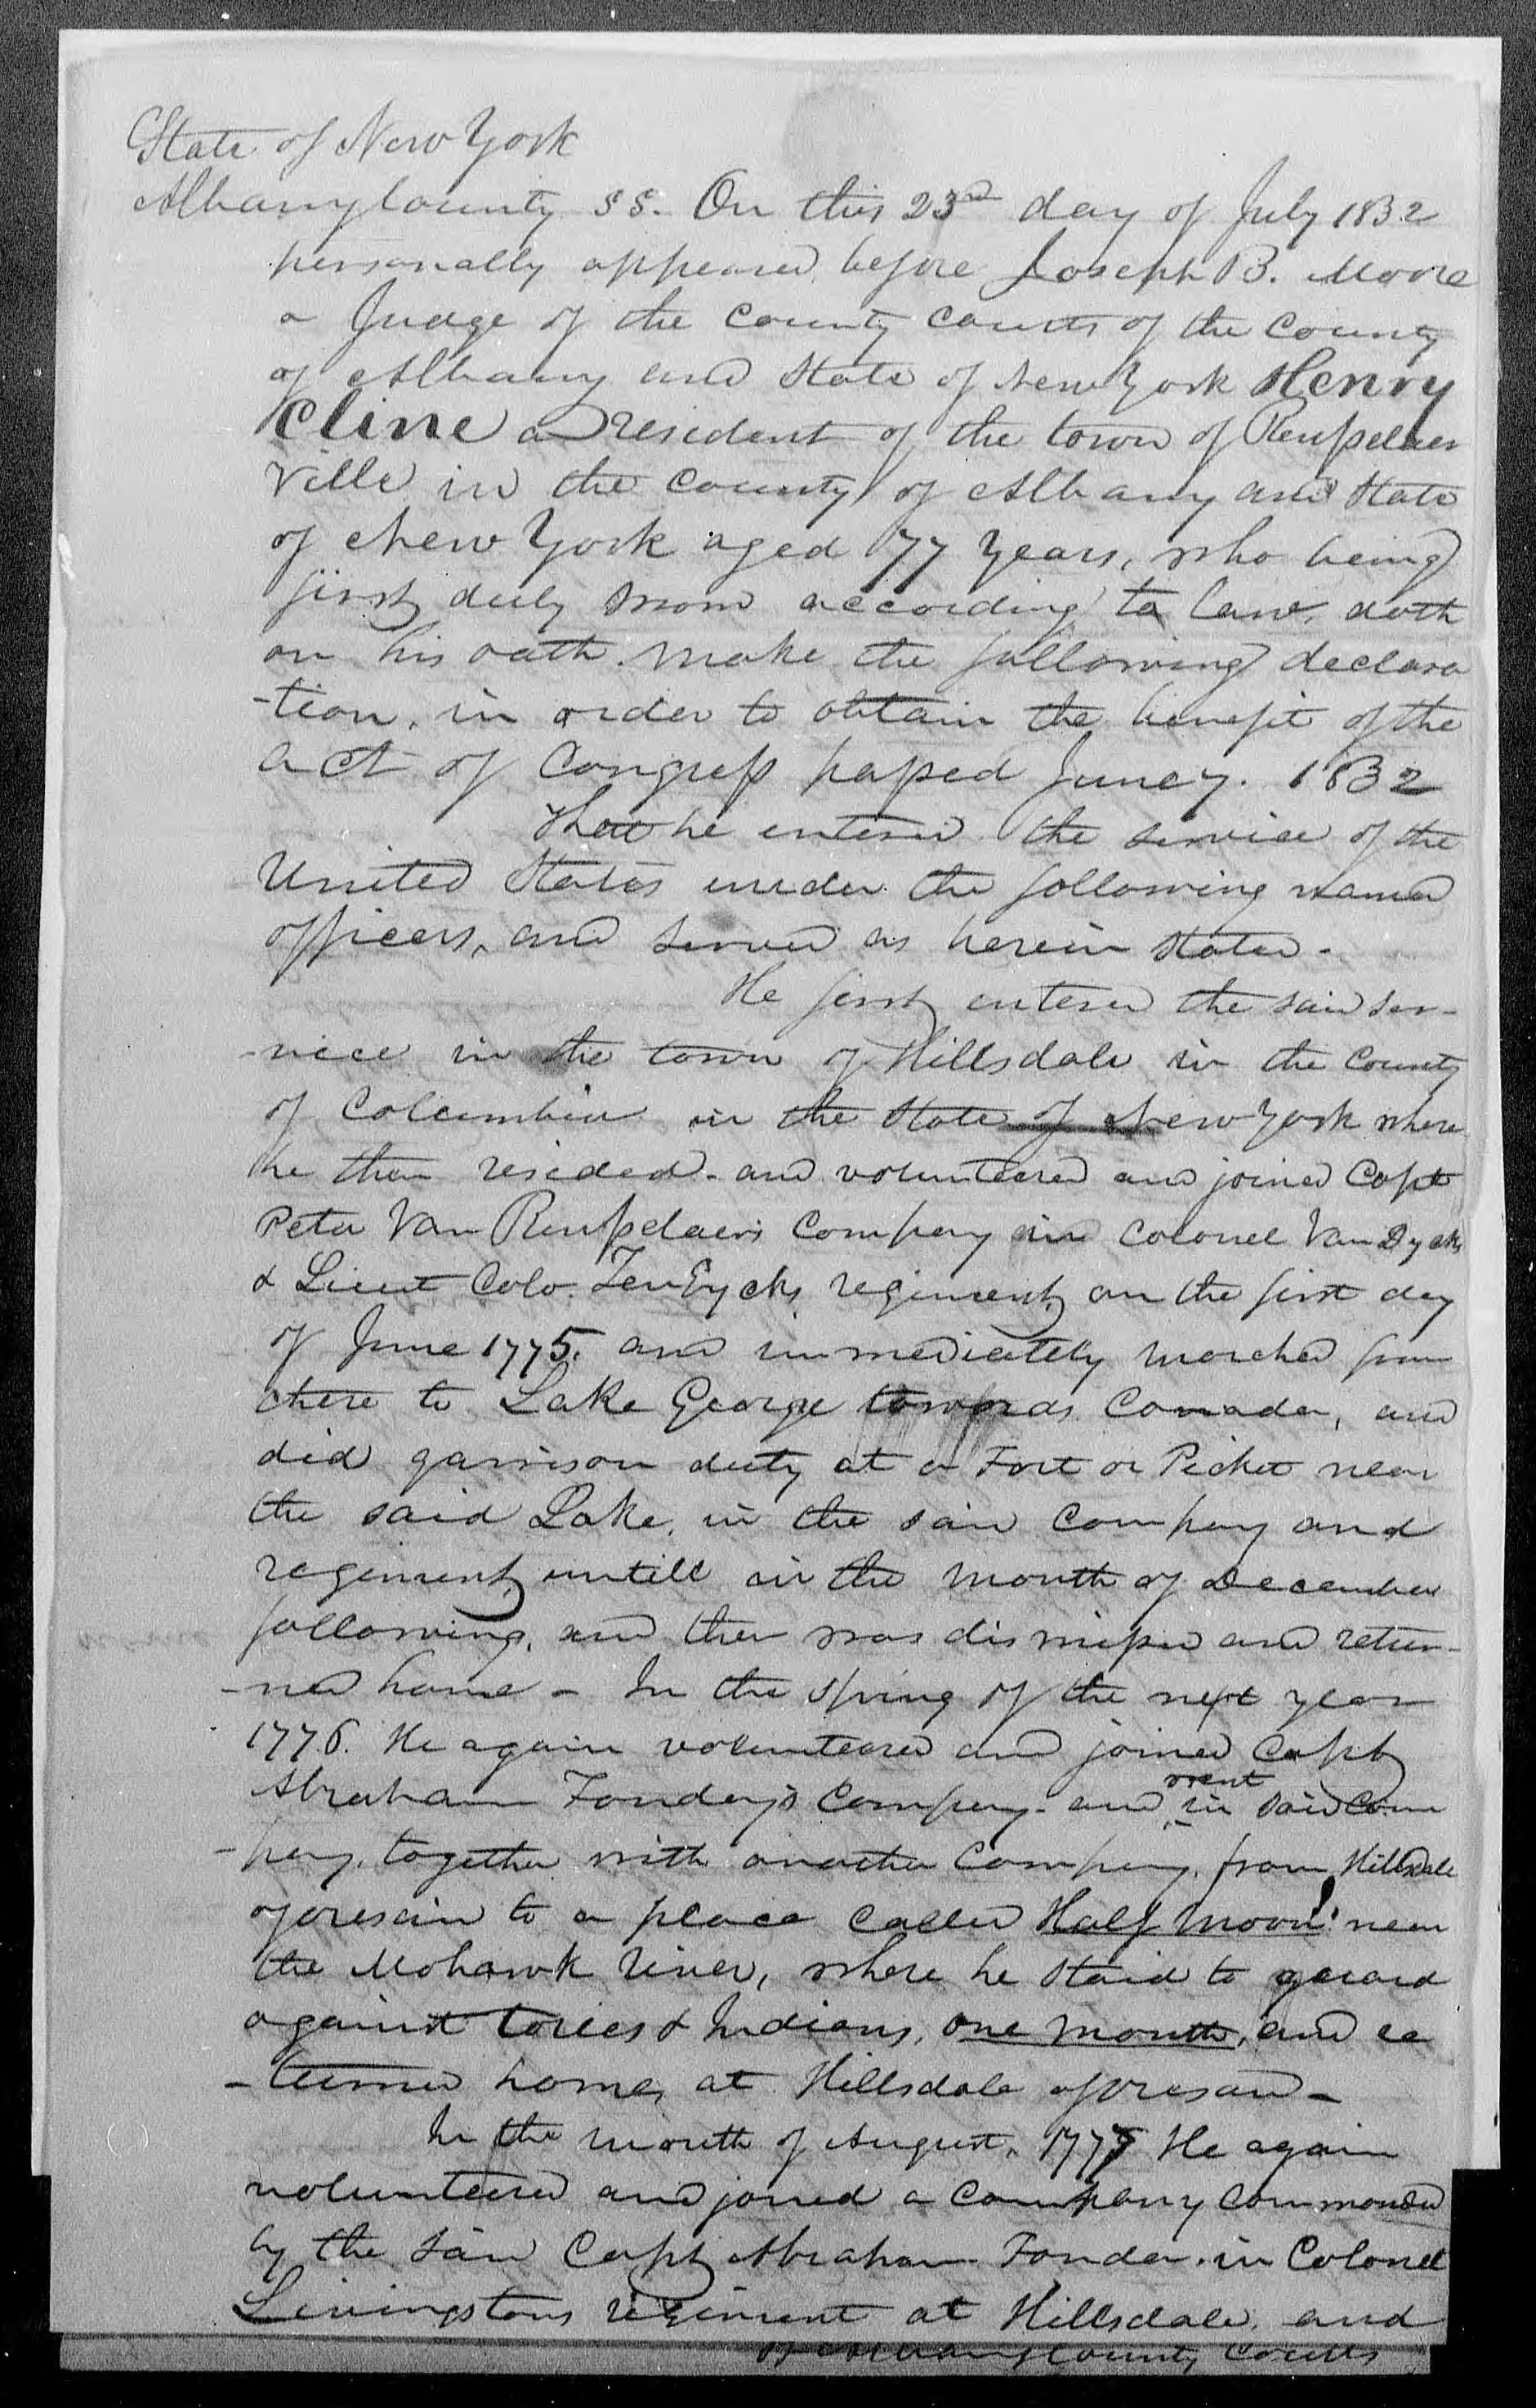 State of New York
Albany County SS. On this 23rd day of July 1832
personally appeared before Joseph B. Moore
a Judge of the County Courts of the County
of Albany and State of New York Henry
Cline a resident of the town of Rensselaer
ville in the County of Albany and State
of New York aged 77 years, who being
first duly sworn according to law, doth
on his oath make the following declara
-tion, in order to obtain the benefit of the
act of Congress passed June 7. 1832
That he entered the service of the
United States under the following named
officers, and served as herein stated -
He first entered the said ser-
-vice in the town of Hillsdale in the County
of Columbia in the State of New York where
he then resided - and volunteered and joined Capt
Peter Van Rensselaers Company in Colonel Van Dycks
& Lieut Colo. Ten Eycks regiment, on the first day
of June 1775. and immediately marched from
there to Lake George towards Canada, and
did garrison duty at a Fort or Picket near
the said Lake, in the said Company and
regiment untill in the month of December
following, and then was dismissed and retur-
-ned home - In the spring of the next year
1776. He again volunteered and joined Capt
Abraham Fonday's Company - and went in said Com
-pany, together with another Company, from Hillsdale
aforesaid to a place called Half Moon! near
the Mohawk River, where he staid to guard
against tories & Indians, one month, and re
-turned home, at Hillsdale aforesaid -
In the month of August, 1777 He again
volunteered and joined a Company commanded
by the said Capt Abraham Fonda, in Colonel
Livingstons regiment at Hillsdale, and
of Albany County Courts